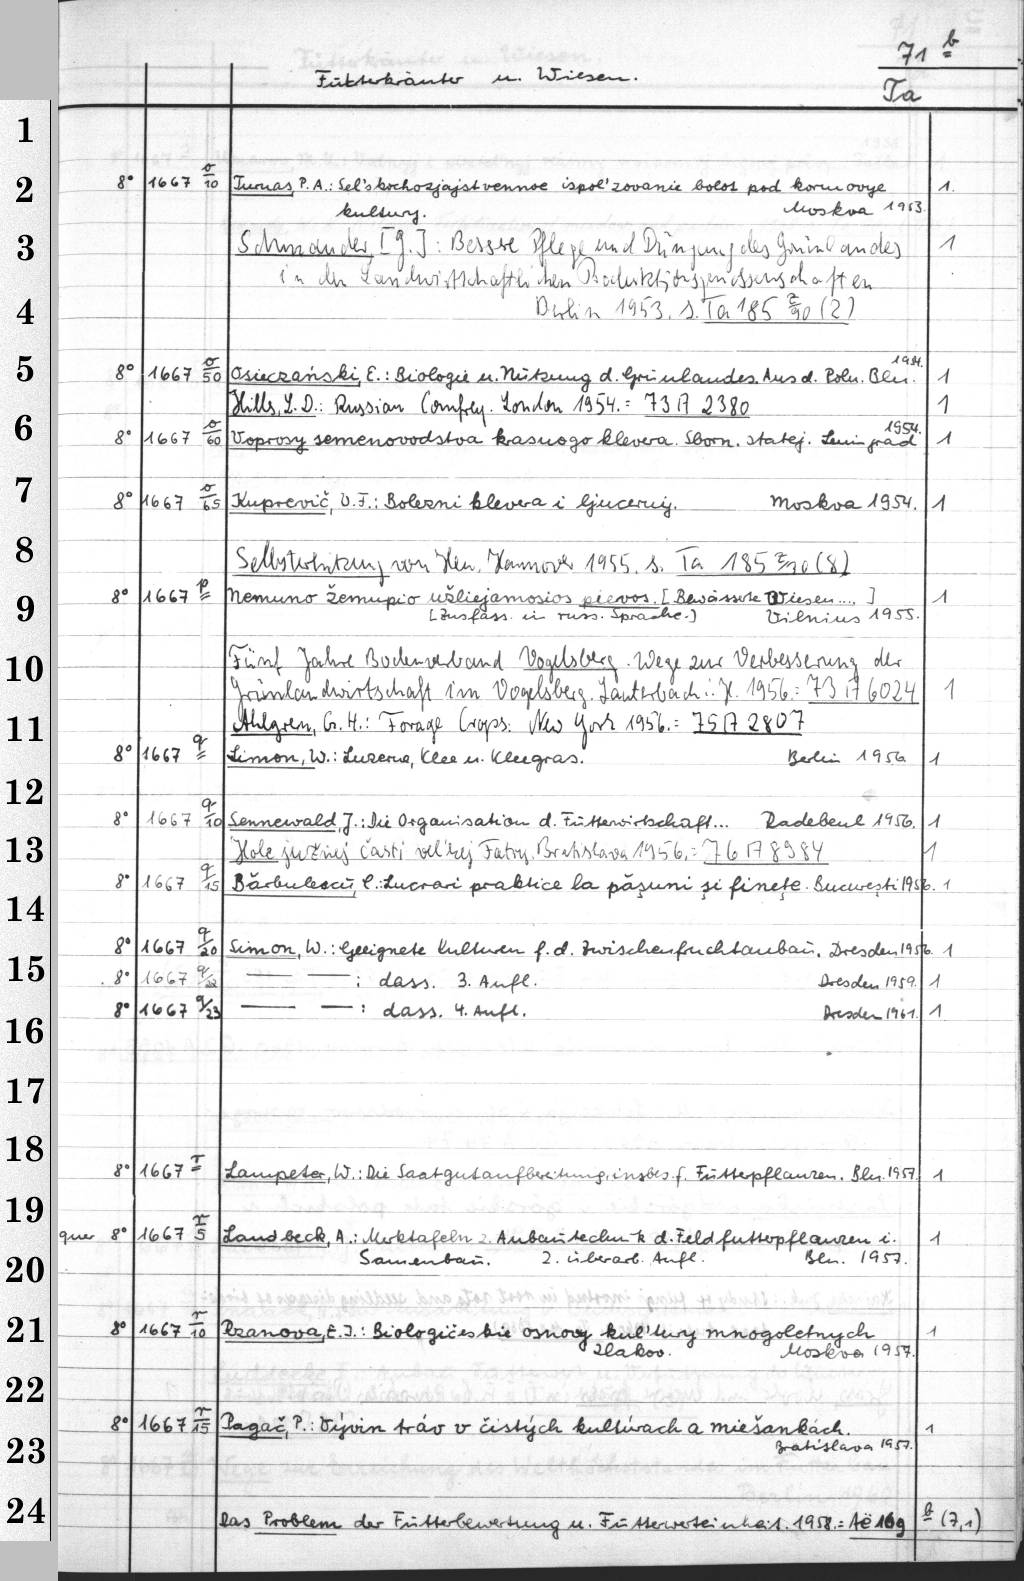 71 b
Futterkräuter u. Wiesen.
Ta
1
2
8° 1667 o/10 Turnas, P. A.: Sel'skochozjajstvennoe ispol'zovanie bolot pod kormovye 1.
kultury. Moskva 1953.
3
Schmauder, [G.]: Bessere Pflege und Düngung des Grünlandes 1
in den Landwirtschaftlichen Produktionsgenossenschaften
4
Berlin 1953. s. Ta 185 z/90 (2)
5
1954.
8° 1667 o/50 Osieczański, E.: Biologie u. Nutzung d. Grünlandes. Aus d. Poln. Bln. 1
Hills, L. D.: Russian Comfrey. London 1954. = 73 A 2380 1
6
1954.
8° 1667 o/60 Voprosy semenovodstva krasnogo klevera. Sborn. statej. Leningrad 1
7
8° 1667 o/65 Kuprevič, V. F.: Bolezni klevera i ljucerny. Moskva 1954. 1
8
Selbsterhitzung von Heu. Hannover 1955. s. Ta 185 z/90 (8)
9
8° 1667 p Nemuno žemupio užliejamosios pievos. [Bewässerte Wiesen .... ] 1
[Zusfass. in russ. Sprache.] Vilnius 1955.
10
Fünf Jahre Bodenverband Vogelsberg. Wege zur Verbesserung der
Grünlandwirtschaft im Vogelsberg. Lauterbach i. H. 1956. = 73 A 6024 1
11
Ahlgren, G. H.: Forage Crops. New York 1956. = 75 A 2807
8° 1667 q Simon, W.: Luzerne, Klee u. Kleegras. Berlin 1956 1
12
8° 1667 q/10 Sennewald, J.: Die Organisation d. Futterwirtschaft... Radebeul 1956. 1
13
Hole južnej časti vel'kej Fatry. Bratislava 1956. = 76 A 8984 1
8° 1667 q/15 Bărbulescu, C.: Lucrari praktice la păşuni şi fineţe. Bucureşti 1956. 1
14
15
8° 1667 q/20 Simon, W.: Geeignete Kulturen f. d. Zwischenfruchtanbau. Dresden 1956. 1
8° 1667 q/22 —— —— : dass. 3. Aufl. Dresden 1959. 1
8° 1667 q/23 —— —— : dass. 4. Aufl. Dresden 1961. 1
16
17
18
8° 1667 r Lampeter, W.: Die Saatgutaufbereitung, insbes. f. Futterpflanzen. Bln. 1957. 1
19
quer 8° 1667 r/5 Landbeck, A.: Merktafeln z. Anbautechnik d. Feldfutterpflanzen i. 1
20
Samenbau. 2. überarb. Aufl. Bln. 1957.
21
8° 1667 r/10 Rzanova, E. I.: Biologičeskie osnovy kul'tury mnogoletnych 1
zlakov. Moskva 1957.
22
8° 1667 r/15 Pagač, P.: Vývin tráv v čistých kultúrach a miešankách. 1
23
Bratislava 1957.
24
Das Problem der Futterbewertung u. Futterwerteinheit. 1958. = Të 169 b (7,1)